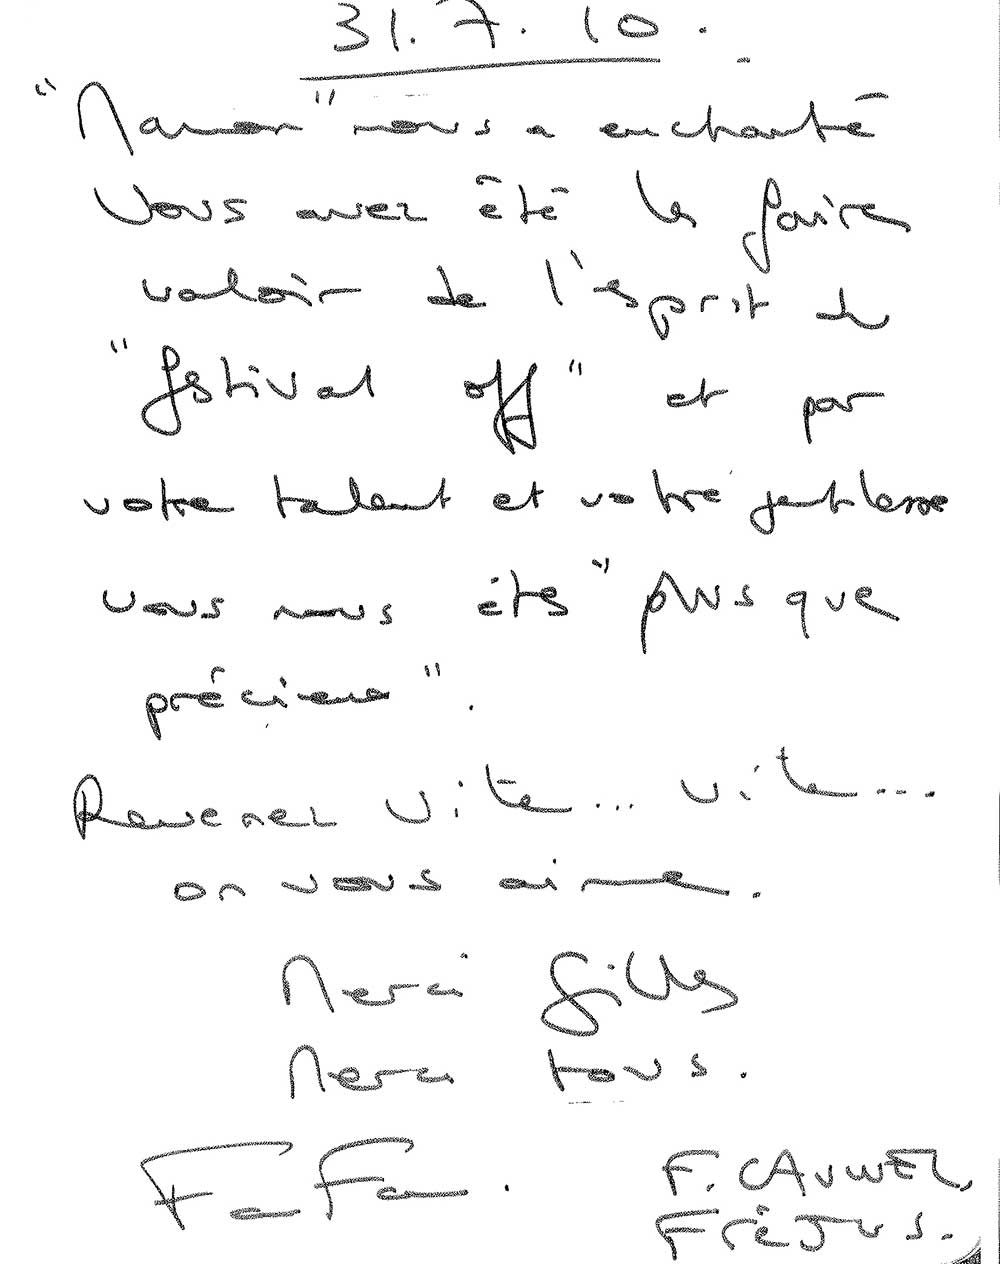 31.7.10.
"Manon" nous a enchanté
Vous avez été les faire
valoir de l'esprit du
"festival off" et par
votre talent et votre gentillesse
vous nous êtes "plus que
précieux".
Revenez vite... vite...
on vous aime.
Merci Gilles
Merci tous.
FanFan.
F. CAUWEL,
FréJus.